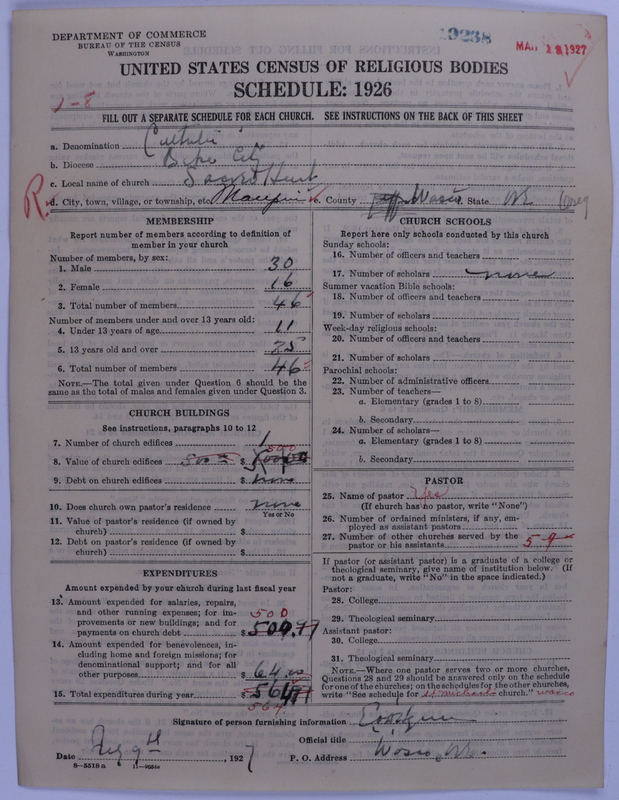 DEPARTMENT OF COMMERCE
BUREAU OF THE CENSUS
WASHINGTON
19238
MAR 18 1927
UNITED STATES CENSUS OF RELIGIOUS BODIES
SCHEDULE: 1926
1-8
FILL OUT A SEPARATE SCHEDULE FOR EACH CHURCH. SEE INSTRUCTIONS ON THE BACK OF THIS SHEET
a. Denomination
b. Diocese Baker City
c. Local name of church Sacred Heart
R. d. City, town, village, or township, etc. Maupin e. County Wasco State Ore. Oreg
MEMBERSHIP
Report number of members according to definition of
member in your church
Number of members, by sex:
1. Male 30
2. Female 16
3. Total number of members 46
Number of members under and over 13 years old:
4. Under 13 years of age 11
5. 13 years old and over 25
6. Total number of members 46
NOTE.—The total given under Question 6 should be the
same as the total of males and females given under Question 3.
CHURCH BUILDINGS
See instructions, paragraphs 10 to 12
7. Number of church edifices 1
8. Value of church edifices $
9. Debt on church edifices $ none
10. Does church own pastor's residence none
Yes or No
11. Value of pastor's residence (if owned by
church) $
12. Debt on pastor's residence (if owned by
church) $
EXPENDITURES
Amount expended by your church during last fiscal year
13. Amount expended for salaries, repairs,
and other running expenses; for im-
provements or new buildings; and for
payments on church debt $ 500
14. Amount expended for benevolences, in-
cluding home and foreign missions; for
denominational support; and for all
other purposes $ 64.00
15. Total expenditures during year $ 564
CHURCH SCHOOLS
Report here only schools conducted by this church
Sunday schools:
16. Number of officers and teachers
17. Number of scholars none
Summer vacation Bible schools:
18. Number of officers and teachers
19. Number of scholars
Week-day religious schools:
20. Number of officers and teachers
21. Number of scholars
Parochial schools:
22. Number of administrative officers
23. Number of teachers—
a. Elementary (grades 1 to 8)
b. Secondary
24. Number of scholars—
a. Elementary (grades 1 to 8)
b. Secondary
PASTOR
25. Name of pastor Yes
(If church has no pastor, write "None")
26. Number of ordained ministers, if any, em-
ployed as assistant pastors
27. Number of other churches served by the
pastor or his assistants 5
If pastor (or assistant pastor) is a graduate of a college or
theological seminary, give name of institution below. (If
not a graduate, write "No" in the space indicated.)
Pastor:
28. College
29. Theological seminary
Assistant pastor:
30. College
31. Theological seminary
NOTE.—Where one pastor serves two or more churches,
Questions 28 and 29 should be answered only on the schedule
for one of the churches; on the schedules for the other churches,
write "See schedule for church." Wasco
Signature of person furnishing information
Official title
Date 9th, 1927 P. O. Address Wasco, Ore.
8-5518 a